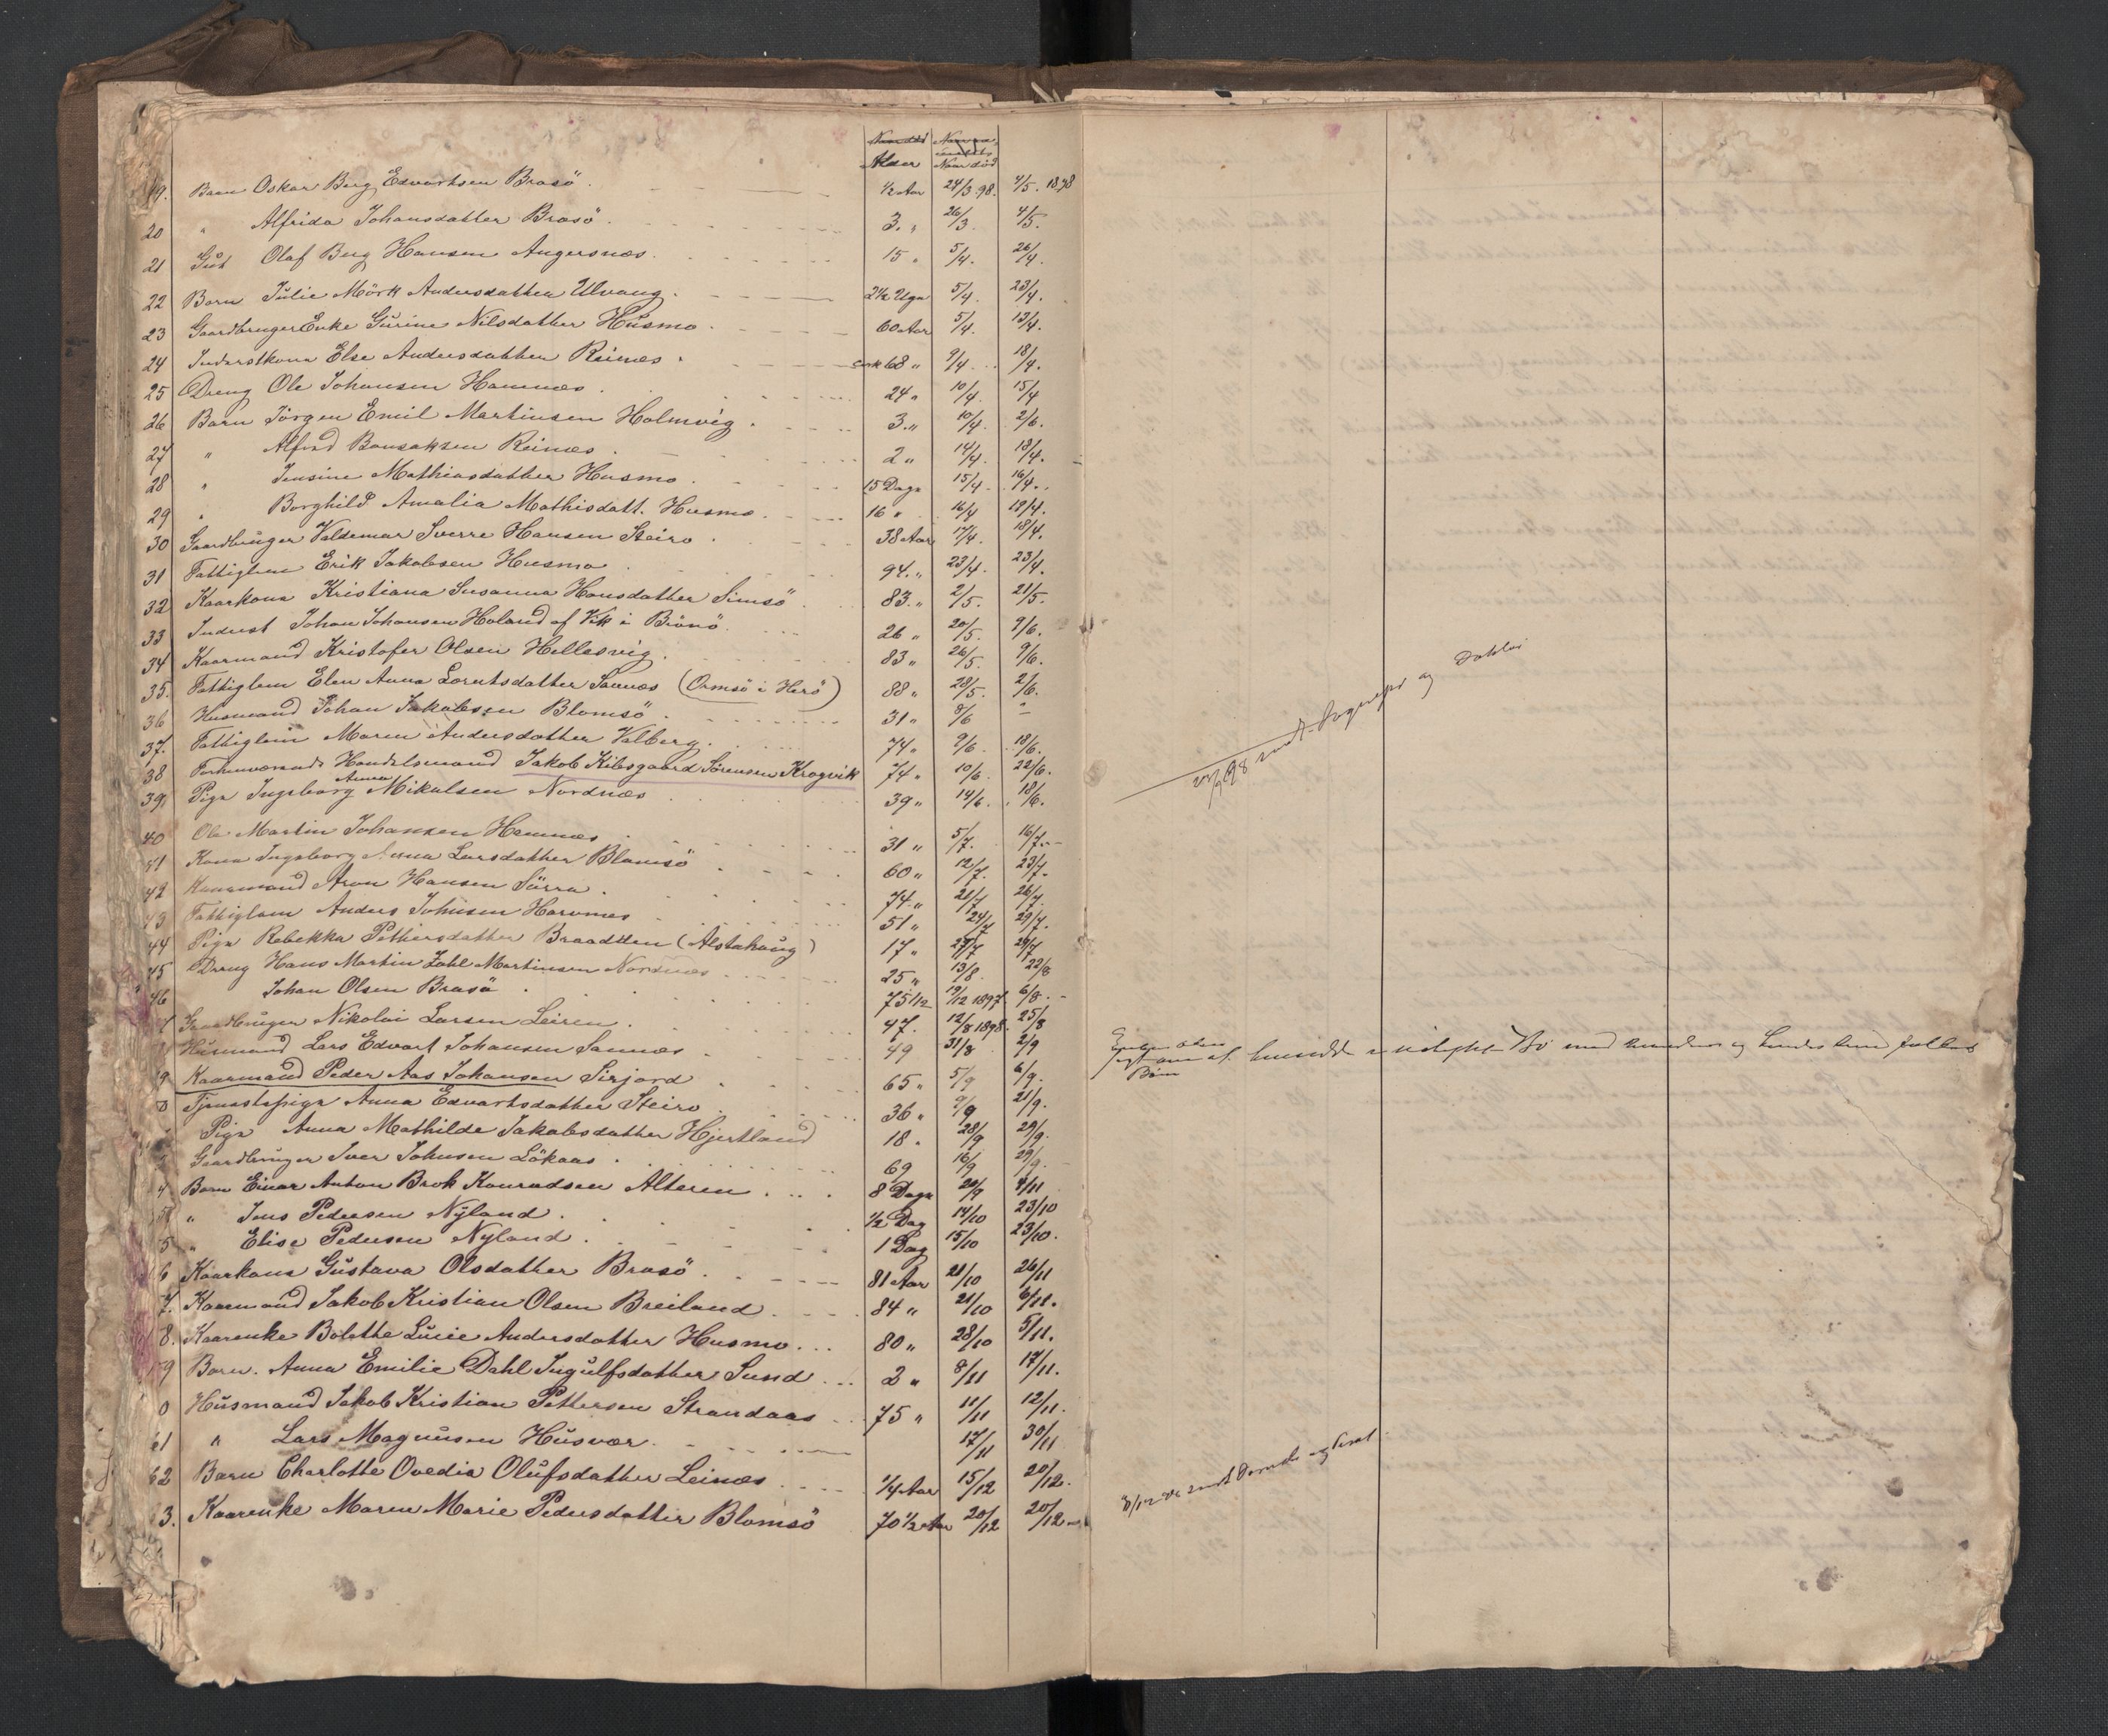 Alder Naar död
19. Barn Oskar Berg Edvartsen Brasö. ½ Aar 24/3 98. 4/5. 1898
20 " Alfrida Johansdatter Brasö. 3. " 26/3. 4/5.
21 Gut Olaf Berg Hansen Angersnes. 15 " 5/4. 26/4.
22 Barn Julie Mörk Andersdatter Ulvang. 2½ Uge 5/4. 23/4.
23 Gaardbruger Enke Gurine Nilsdatter Husmo. 60 Aar 5/4. 13/4.
24 Inderstkone Else Andersdatter Reines. 68 " 9/4. 18/4.
25 Dreng Ole Johansen Hamnes. 24 " 10/4. 15/4
26 Barn Jörgen Emil Martinsen Holmvig. 3. " 10/4. 2/6.
27 " Alfred Bonsaksen Reines. 2 " 14/4. 18/4.
28 " Jensine Mathiasdatter Husmo. 15 Dage 15/4. 16/4.
29 " Borghild Amalia Mathisdatt. Husmo. 16 " 16/4 19/4.
30 Gaardbruger Valdemar Sverre Hansen Steiro. 38 Aar 17/4. 18/4.
31 Fattiglem Erik Jakobsen Husmo. 94. " 23/4. 23/4.
32 Kaarkona Kristiana Susanna Hansdatter Simsö. 83. " 2/5. 21/5.
33 Inderst Johan Johansen Holand af Vik i Brönö. 26 " 20/5. 9/6.
34 Kaarmand Kristofer Olsen Hellesvig. 83 " 26/5. 9/6.
35. Fattiglem Elen Anna Lorntsdatter Sannes (Ormsö i Herö) 88 " 28/5. 2/6.
36 Husmand Johan Jakobsen Blomsö. 31 " 8/6 "
37. Fattiglem Maren Andersdatter Valberg. 74 " 9/6. 18/6.
38 Forhenværende Handelsmand Jakob Kibsgaard Sörensen Krogvik 74 " 10/6. 22/6.
39. Pige Ingeborg Anna Mikalsen Nordnes. 39 " 14/6. 18/6.
40 Ole Martin Johansen Hamnes. 31 " 5/7. 16/7.
41 Kona Ingeborg Anna Larsdatter Blomsö. 60 " 12/7. 23/7.
42 Kaarmand Aron Hansen Sörra. 74. " 21/7 26/7.
43 Fattiglem Anders Johnsen Havnnes. 51 " 24/7 29/7.
44 Pige Rebekka Pettersdatter Braadden (Alstahaug) 17 " 27/7 29/7
45 Dreng Hans Martin Zahl Martinsen Nordnes. 25 " 13/8. 22/8
46 Johan Olsen Brasö. 75 1/12 19/12 1897 6/8.
Gaardbruger Nikolai Larsen Leiren. 47. 12/8 1898. 25/8
Husmand Lars Edvart Johansen Sannes. 49 31/8 2/9
9 Kaarmand Peder Aas Johansen Sirjord. 65 " 5/9 6/9.
0 Tjenestepige Anna Edvartsdatter Steiro. 36 " 9/9 21/9.
Pige Anna Mathilde Jakobsdatter Hjertland 18. 28/9 29/9.
Gaardbruger Iver Johnsen Lökaas. 69 16/9 29/9.
Barn Einar Anton Brok Konradsen Alteren. 8 Dage 20/9 4/11
" Jens Pedersen Nyland. ½ Dag 14/10 23/10
5 " Elise Pedersen Nyland. 1 Dag 15/10 23/10.
6 Kaarkona Gustava Olsdatter Brasö. 81 Aar 21/10 26/11
7. Kaarmand Jakob Kristian Olsen Breiland. 84 " 21/10 6/11.
8. Kaarenke Bolette Lucie Andersdatter Husmo. 80 " 28/10 5/11.
59 Barn. Anna Emilie Dahl Ingulfsdatter Sund. 2 " 8/11 17/11.
0 Husmand Jakob Kristian Pettersen Strandaas. 75 " 11/11 12/11.
61 " Lars Magnusen Husvær. 17/11 30/11
62 Barn Charlotte Ovedia Olufsdatter Leines. ¼ Aar 15/12 20/12.
3. Kaarenke Maren Marie Pedersdatter Blomsö 70½ Aar 20/12 20/12
98 sendt og
af i Bö med og
Börn
sendt og